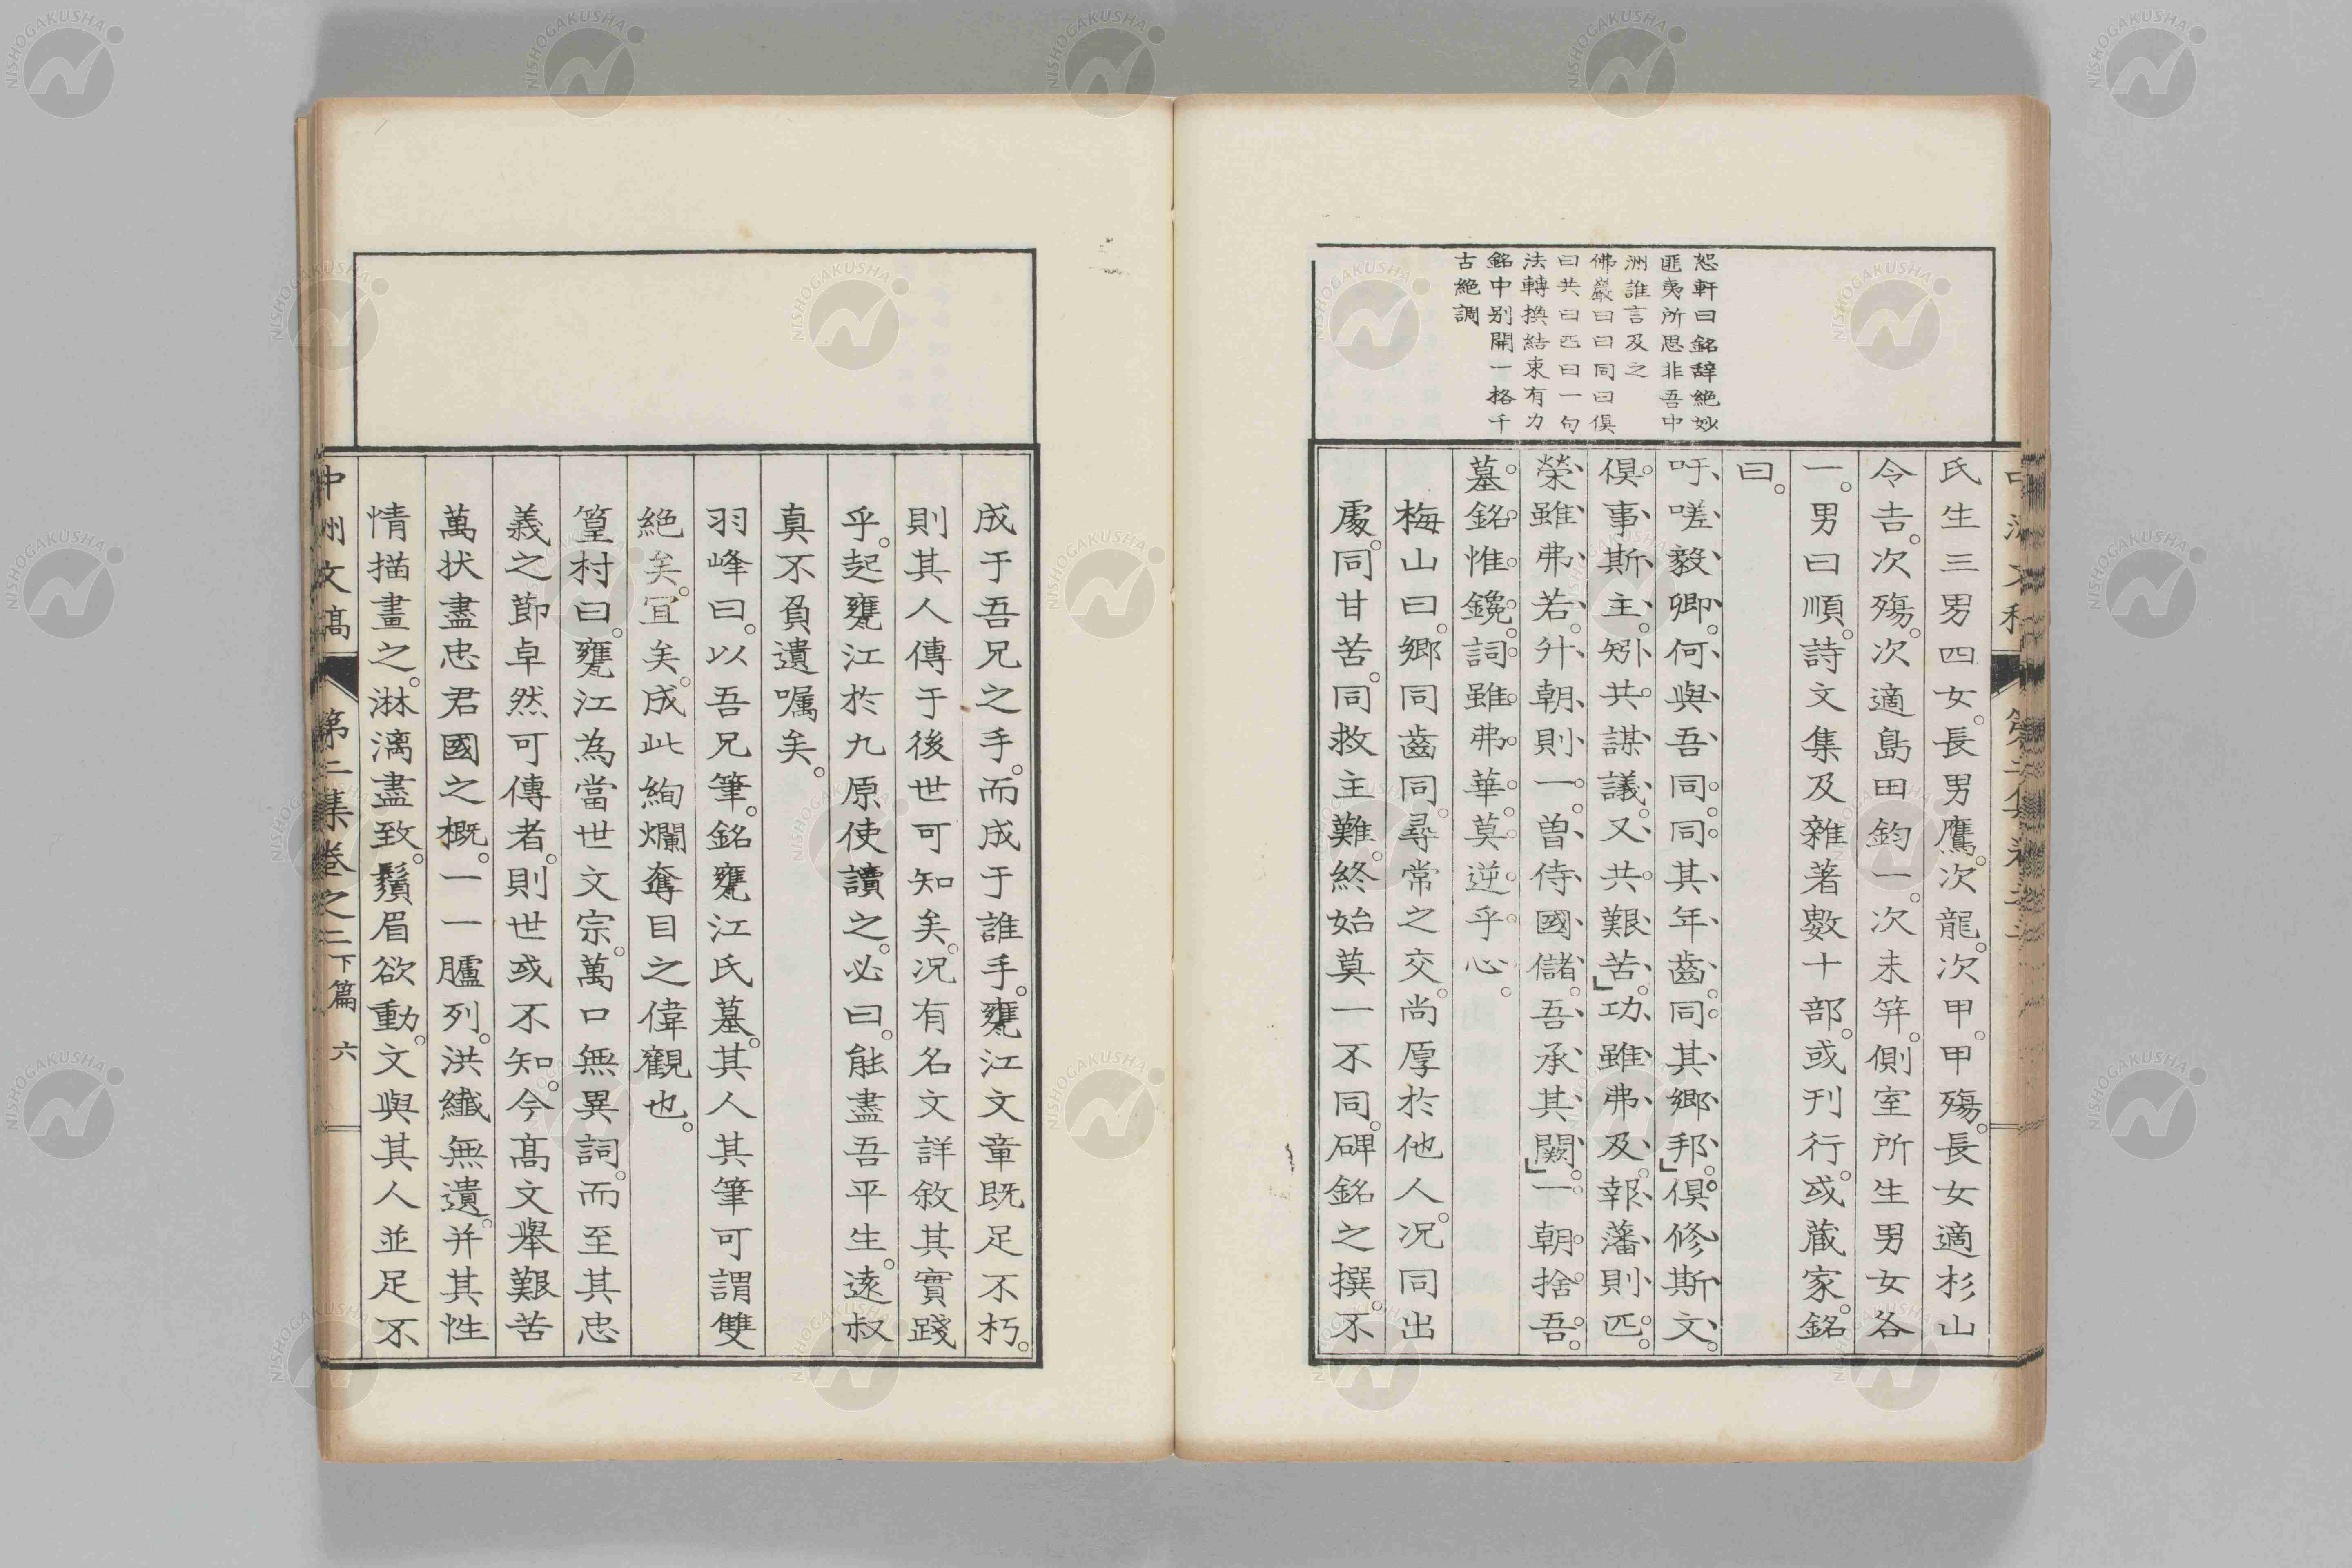 恕軒曰銘辞絶妙
匪夷所思非吾中
洲誰言及之
佛巖曰曰同曰俱
曰共曰匹曰一句
法轉換結束有力
銘中别開一格千
古絶調
氏生三男四女。長男鷹。次龍。次甲。甲殤。長女適杉山
令吉。次殤。次適島田鈞一。次未笄。側室所生男女各
一。男曰順。詩文集及雜著數十部。或刊行。或蔵家。銘
曰。
吁嗟毅卿。何與吾同。同其年齒。同其鄉邦。」俱修斯文。
俱事斯主。矧共謀議。又共艱苦。」功雖弗及。報藩則匹。
榮雖弗若。升朝則一。曽侍國儲。吾承其闕。」一朝捨吾。
墓銘惟鑱。詞雖弗華。莫逆乎心。
梅山曰。鄉同齒同。尋常之交。尚厚於他人。况同出
處。同甘苦。同救主難。終始莫一不同。碑銘之撰。不
成于吾兄之手。而成于誰手。甕江文章既足不朽。
則其人傳于後世可知矣。况有名文詳敘其實踐
乎。起甕江於九原使讀之。必曰。能盡吾平生。逺叔
真不負遺囑矣。
羽峰曰。以吾兄筆。銘甕江氏墓。其人其筆可謂雙
絶矣。冝矣。成此絢爛奪目之偉觀也。
篁村曰。甕江為當世文宗。萬口無異詞。而至其忠
義之節卓然可傳者。則世或不知。今髙文舉艱苦
萬状盡忠君國之概。一一臚列。洪纖無遺。并其性
情描畫之。淋漓盡致。鬚眉欲動。文與其人並足不
中洲文稿 第二集卷之二下篇 六